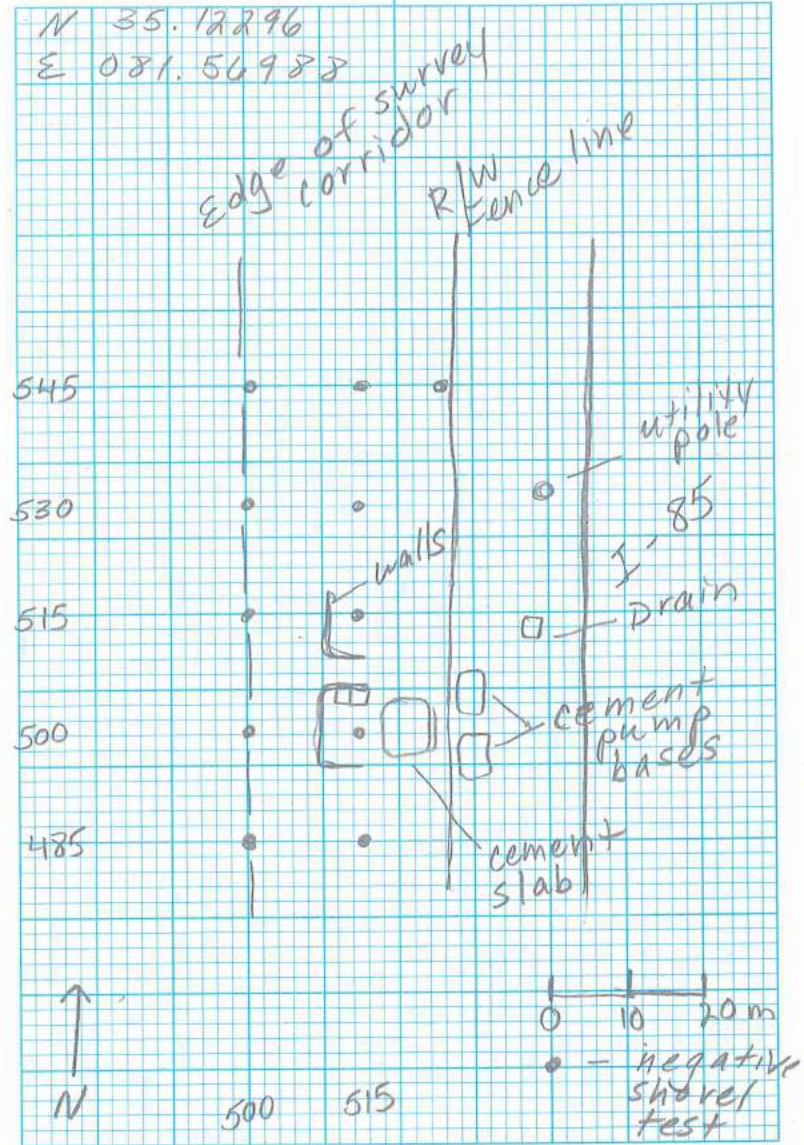 N 35.12296
E 081.56988
Edge of survey
corridor
R/W
Fence line
545
utility
pole
530
I-85
walls
515
Drain
500
cement
pump
bases
485
cement
slab
0 10 20 m
● - negative
shovel
test
N
500 515